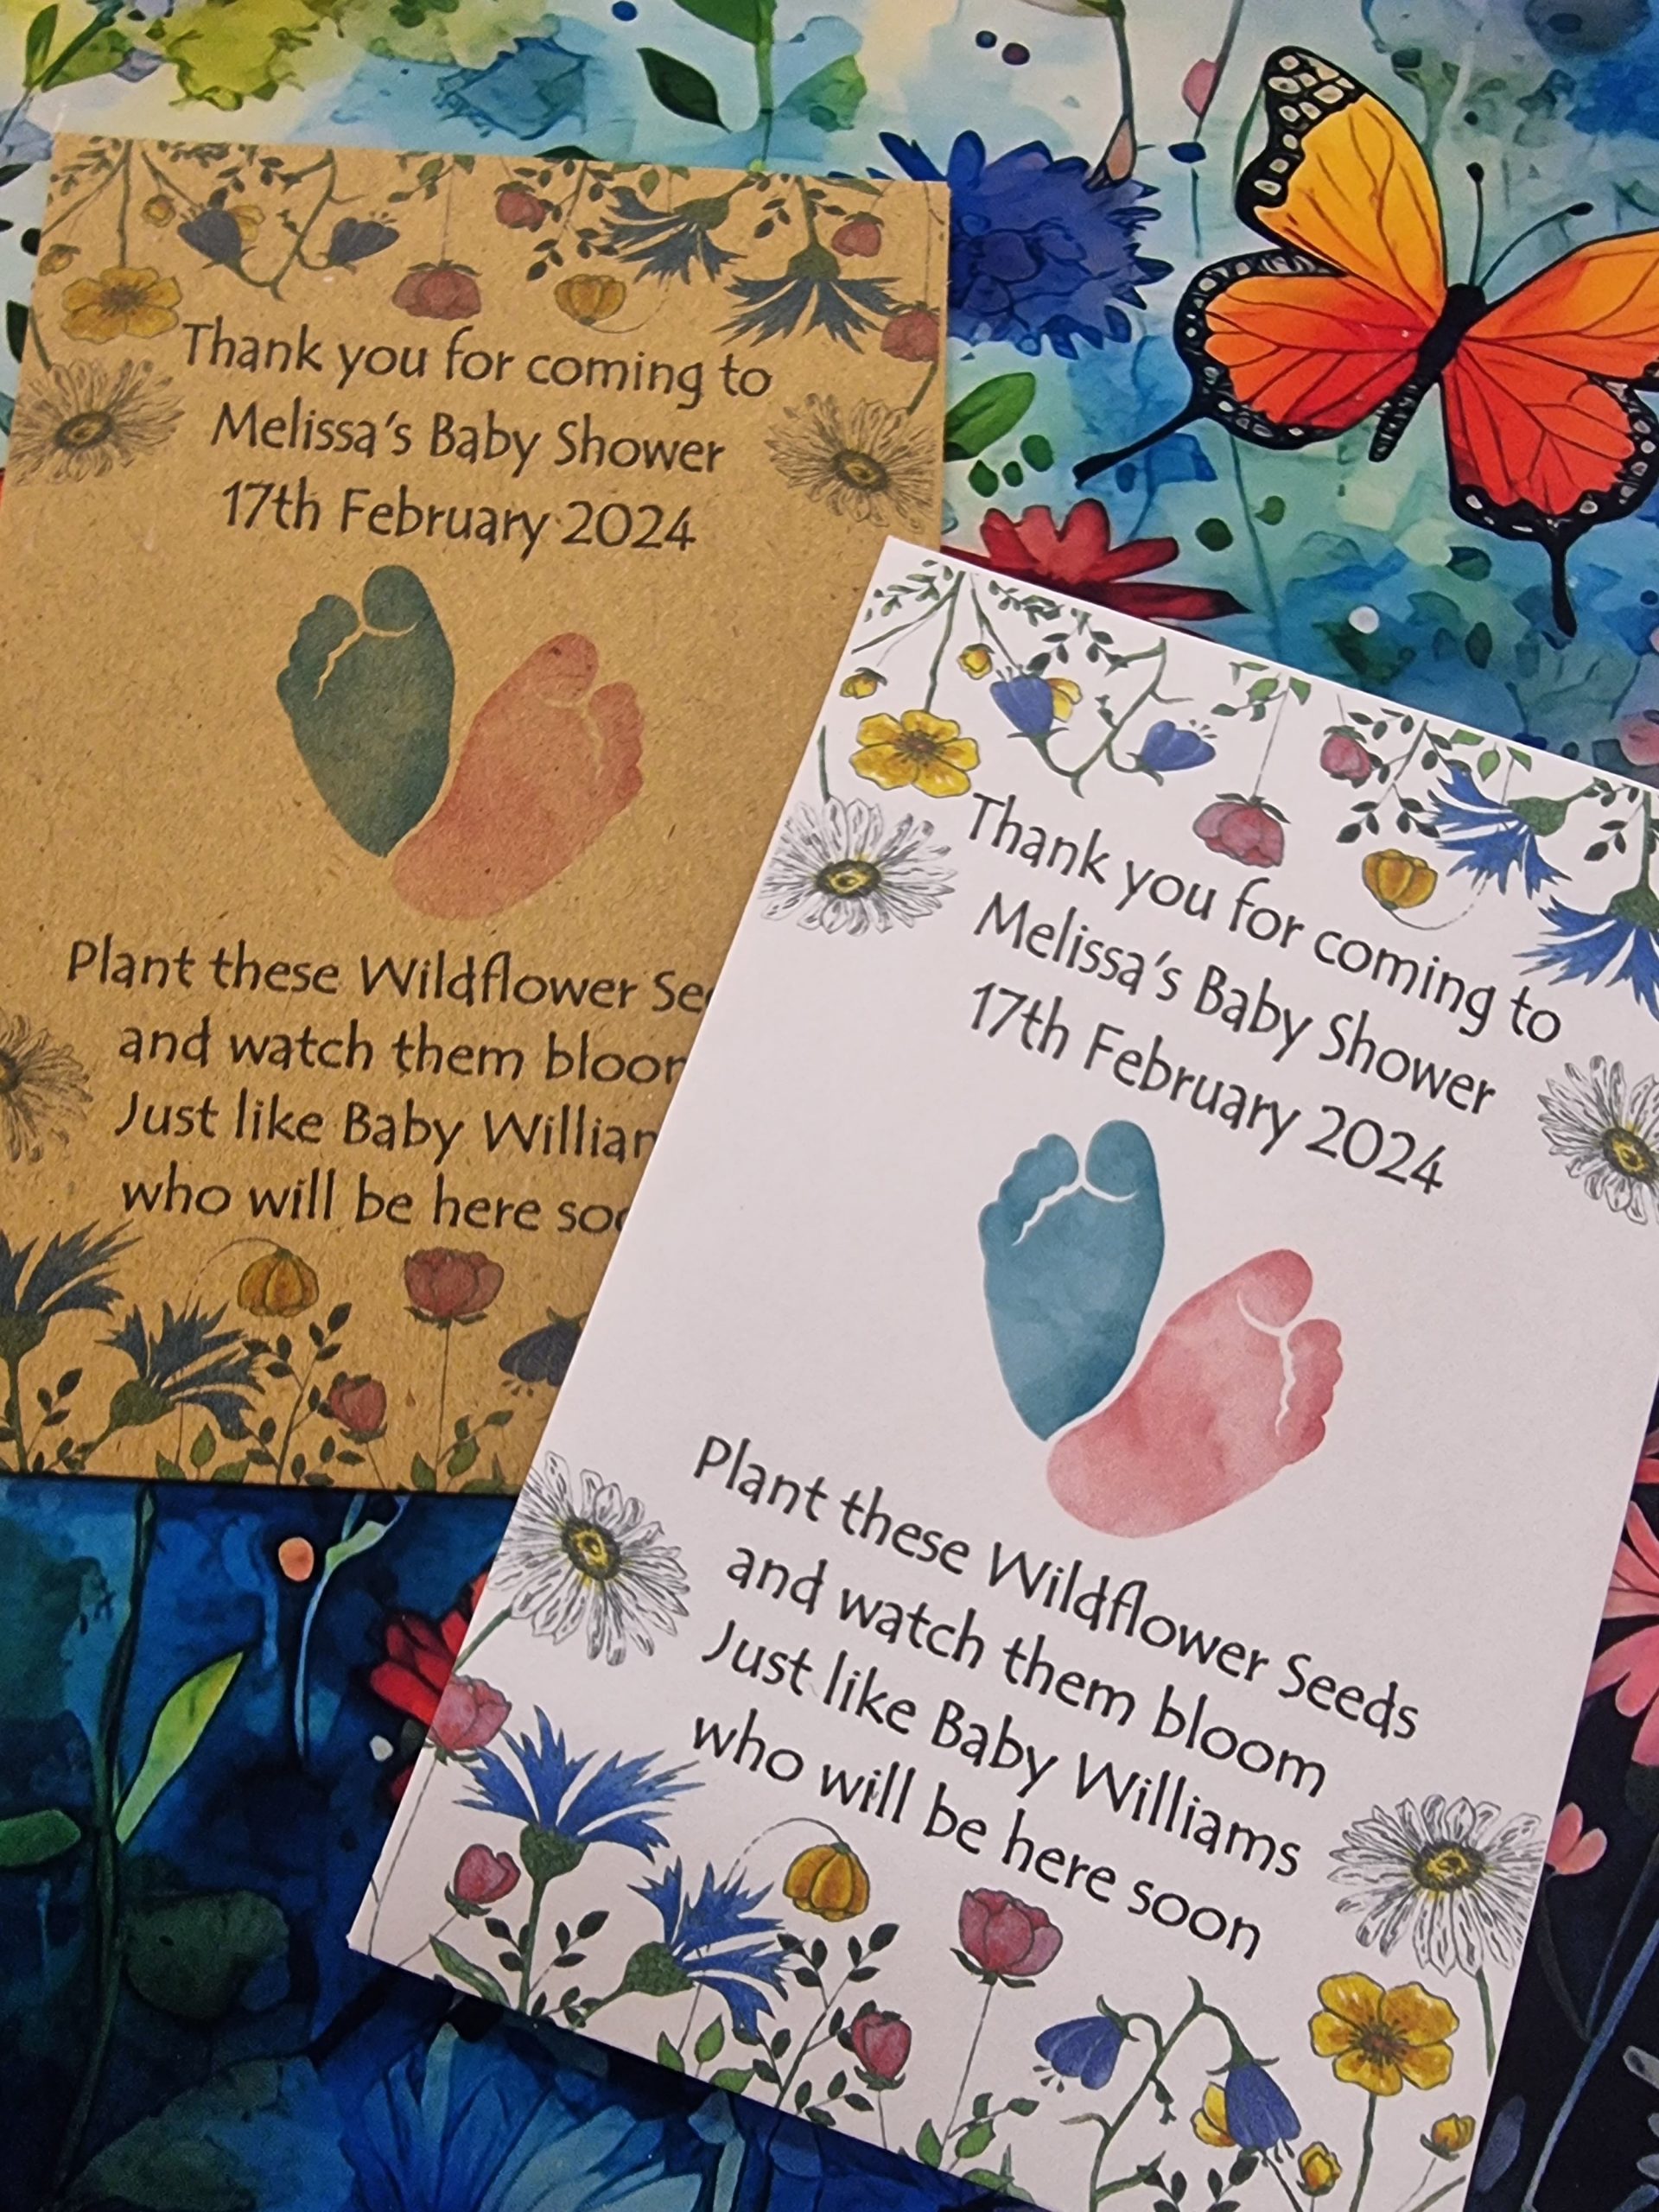 Thank you for coming to
Melissa's Baby Shower
17th February 2024
Plant these Wildflower
and watch them
Just like Baby
who will be here
Thank you for coming to
Melissa's Baby Shower
17th February 2024
Plant these Wildflower Seeds
and watch them bloom
Just like Baby Williams
who will be here soon